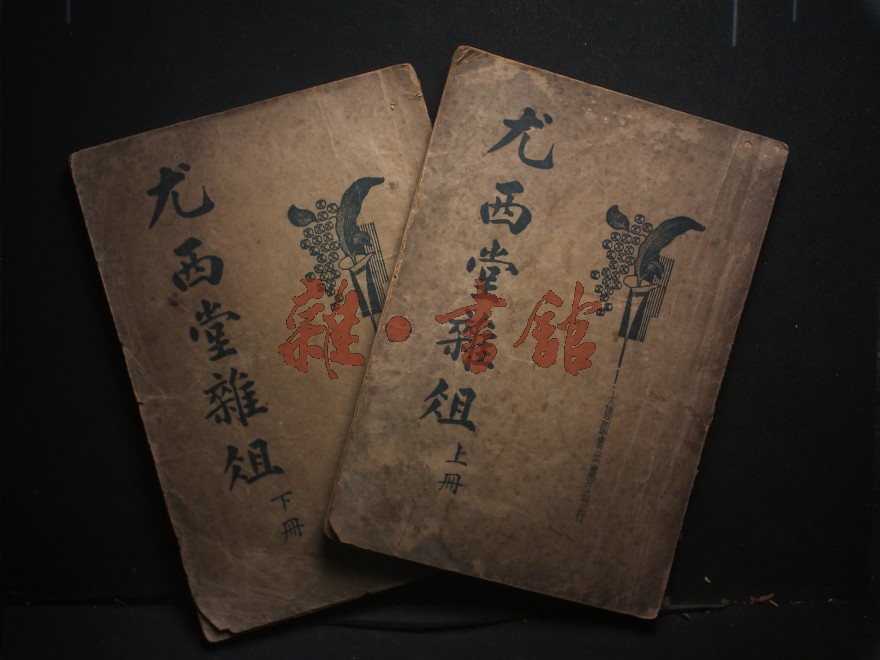 尤西堂雜俎
下冊
尤西堂雜俎
上冊
雜·書館